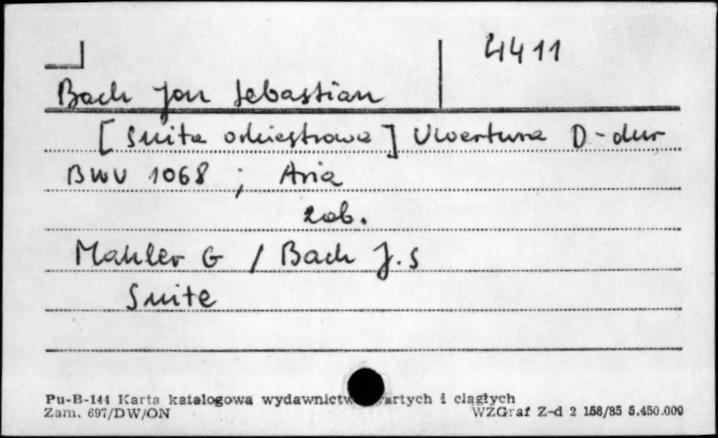 4411
Bach Jan Sebastian
[Suita orkiestrowa] Uwertura D-dur
BWV 1068 ; Aria
zob.
Mahler G / Bach J.S
Suite
Pu-B-144 Karta katalogowa wydawnictw zwartych i ciągłych
Zam. 697/DW/ON WZGraf Z-d 2 158/85 5.450.000